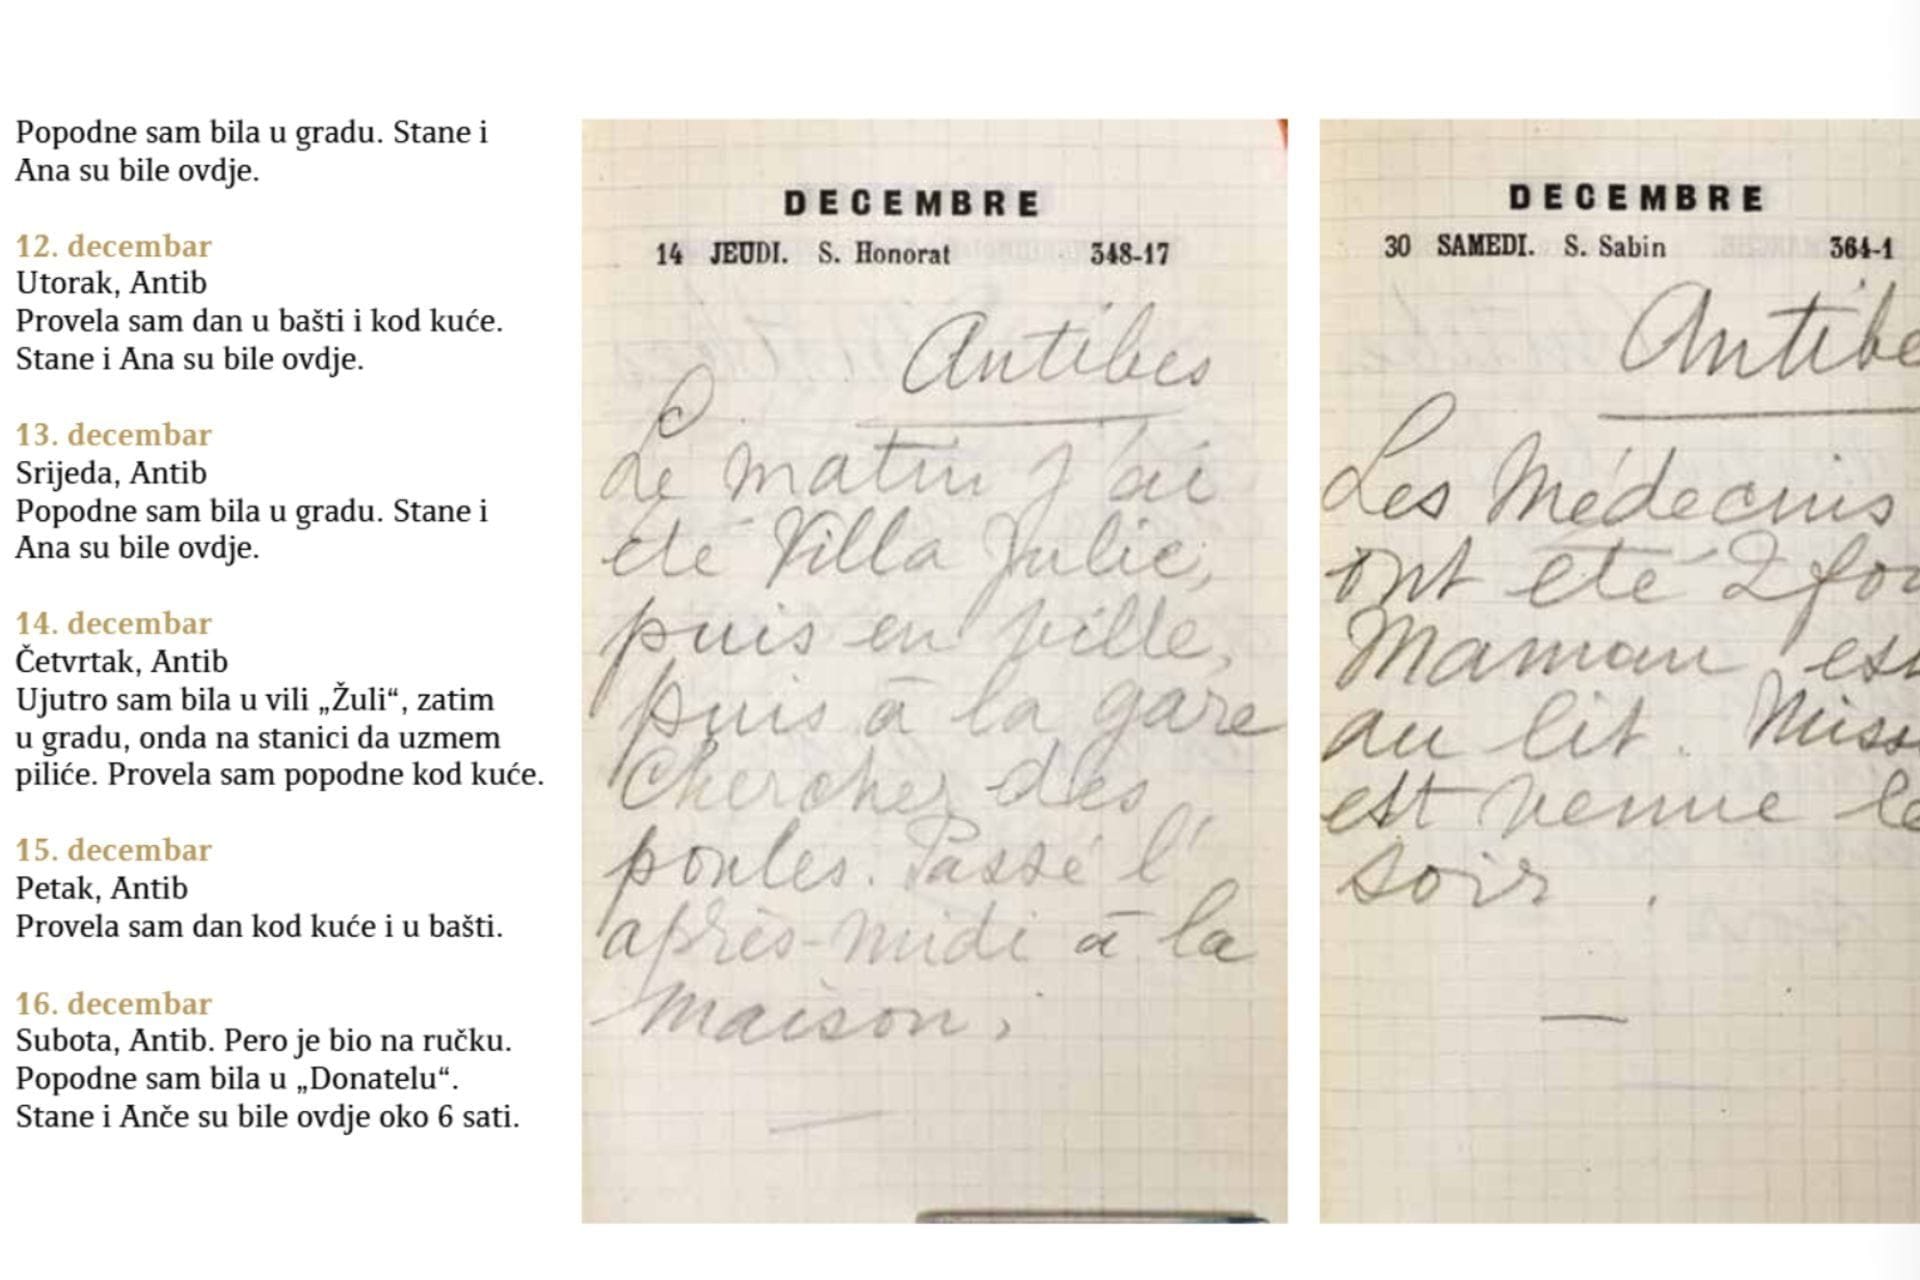 Popodne sam bila u gradu. Stane i
Ana su bile ovdje.
12. decembar
Utorak, Antib
Provela sam dan u bašti i kod kuće.
Stane i Ana su bile ovdje.
13. decembar
Srijeda, Antib
Popodne sam bila u gradu. Stane i
Ana su bile ovdje.
14. decembar
Četvrtak, Antib
Ujutro sam bila u vili „Žuli“, zatim
u gradu, onda na stanici da uzmem
piliće. Provela sam popodne kod kuće.
15. decembar
Petak, Antib
Provela sam dan kod kuće i u bašti.
16. decembar
Subota, Antib. Pero je bio na ručku.
Popodne sam bila u „Donatelu“.
Stane i Anče su bile ovdje oko 6 sati.
DECEMBRE
14 JEUDI. S. Honorat 348-17
Antibes
Le matin j'ai
été Villa Julie,
puis en ville,
puis à la gare
chercher des
poules. Passé l'
après-midi à la
maison.
DECEMBRE
30 SAMEDI. S. Sabin 364-1
Antibe
Les Médecins
ont été 2 foi
Maman est
au lit. Miss
est venue le
soir.